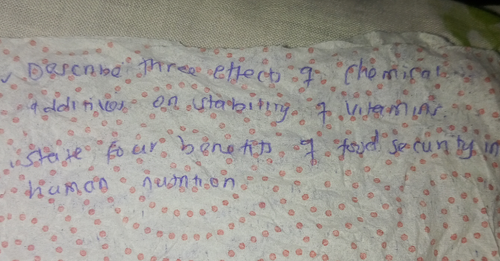 Describe three effects of chemical
additives on stability of vitamins
state four benefits of food security in
human nutrition